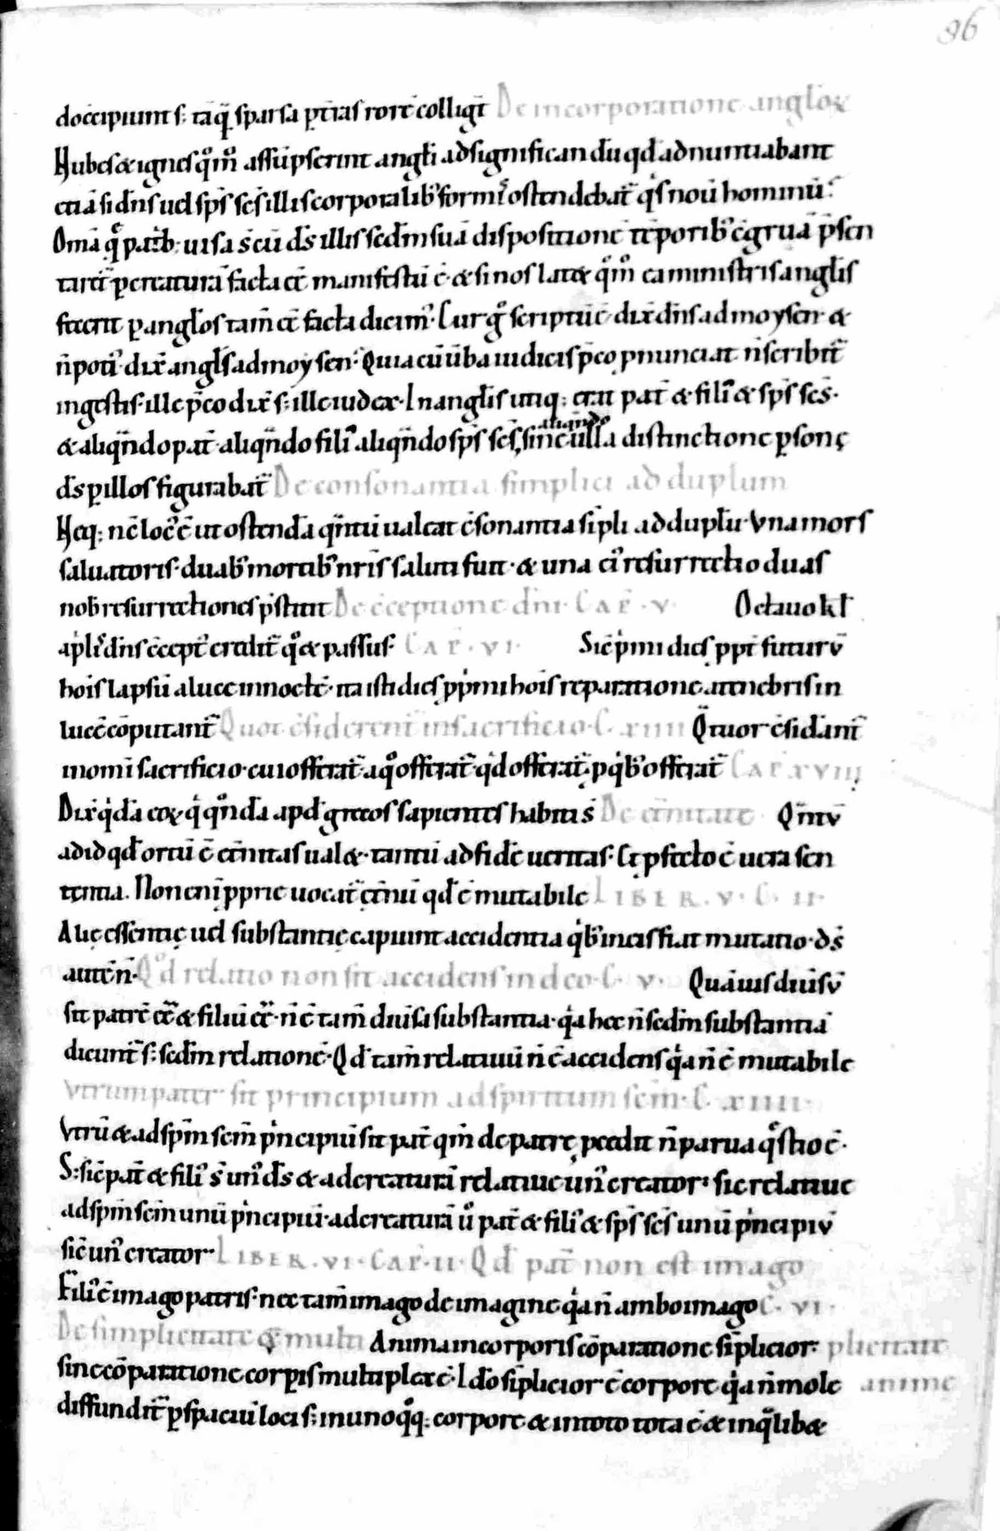 96
docċipiunt s; taq̄ sparsa pt̄ias rore colligt̄ De incorporatione anglox
Nubes & ignes q̊m̄ assūpserint angli ad significandū qd̄ adnuntiabant
etiā si dn̄s uel sp̄s sc̄s illis corporalib; formis ostendebat̄ q̄s nouit hominū.
Om̄a q̄ patrib; uisa s̄ cū d̄s illis sed̄m suā dispositionē tēporib; c̄gruā p̄sen
taret̄ p creaturā facta eē manifestū ē. & si nos latet q̊m̄ ea ministris anglis
fecerit p anglos tam̄ eē facta dicim. Cur g̊ scriptū ē. dix̄ dn̄s ad moysen. &
n̄ poti. dix̄ angls ad moysen. Quia cū ūba iudicis p̄co pnunciat n̄ scribit̄
in gestis. ille p̄co dix̄ s; ille iudex. In anglis utiq; erat pat̄ & fili & sp̄s sc̄s.
& aliqn̄do pat̄ aliqn̄do fili aliqn̄do sp̄s sc̄s, sine ulla distinctione psonę
d̄s p illos figurabat̄ De consonantia simplici ad duplum
Neq; nc̄ loc ē ut ostendā qn̄tū ualeat c̄sonantia sīpli ad duplū. Vna mors
saluatoris. duab mortib n̄ris saluti fuit. & una ei resurrectio duas
nob resurrectiones p̄stitit De c̄ceptione dn̄i. Cap̄. v. Octauo kl̄
apl dn̄s c̄cept credit̄ q̊ & passus. Cap̄. vi. Sic p̄mi dies ppt̄ futurū
hois lapsū a luce in noctē. ita isti dies pp̄mi hois reparatione a tenebris in
lucē cōputant̄ Quot c̄siderent̄ in sacrificio. C. xiiii Q̄tuor c̄sidant̄
in omi sacrificio. cui offerat̄. a q̊ offerat̄. q̄d offerat̄. p q̄b offerat̄ Cap̄. xviii
Dix̄ q̄dā eox q̄ qn̄dā apd grecos sapientes habiti s̄ De et̄nitate Q̄ntū
ad id qd̄ ortū ē et̄nitas ualet. tantū ad fidē ueritas. Et pfecto ē uera sen
tentia. Non eni pprie uocat̄ et̄nū qd̄ ē mutabile Liber. v. C. ii.
Alię essentię uel substantię capiunt accidentia q̄b in eis fiat mutatio. d̄s
autē n̄. Qd relatio non sit accidens in deo. C. v. Quāuis diūsū
sit patrē eē & filiū eē. n̄ ē tam̄ diūsa substantia. q̄a hec n̄ sed̄m substantiā
dicunt̄ s; sed̄m relationē. Qd̄ tam̄ relatiuū n̄ ē accidens q̄a n̄ ē mutabile
Vtrum pater sit principium ad spiritum scm̄. C. xiiii.
Vtrū & ad sp̄m scm̄ p̄ncipiū sit pat̄ qm̄ de patre pcedit n̄ parua q̄stio ē.
S; sic pat̄ & fili s̄ un d̄s & ad creaturā relatiue un creator. sic relatiue
ad sp̄m scm̄ unū p̄ncipiū. ad creaturā ū pat̄ & fili & sp̄s sc̄s unū p̄ncipiū
sic un creator. Liber. vi. Cap̄. ii. Qd pat̄ non est imago
Fili ē imago patris. nec tam̄ imago de imagine q̄a n̄ ambo imago C. vi.
De simplicitate & multi Anima in corporis cōparatione sīplicior. plicitate
sine cōparatione corpis multiplex ē. Ido sīplicior ē corpore q̄a n̄ mole anime
diffundit̄ p spaciū loci s; in unoq̊q; corpore & in toto tota ē & in q̄libet